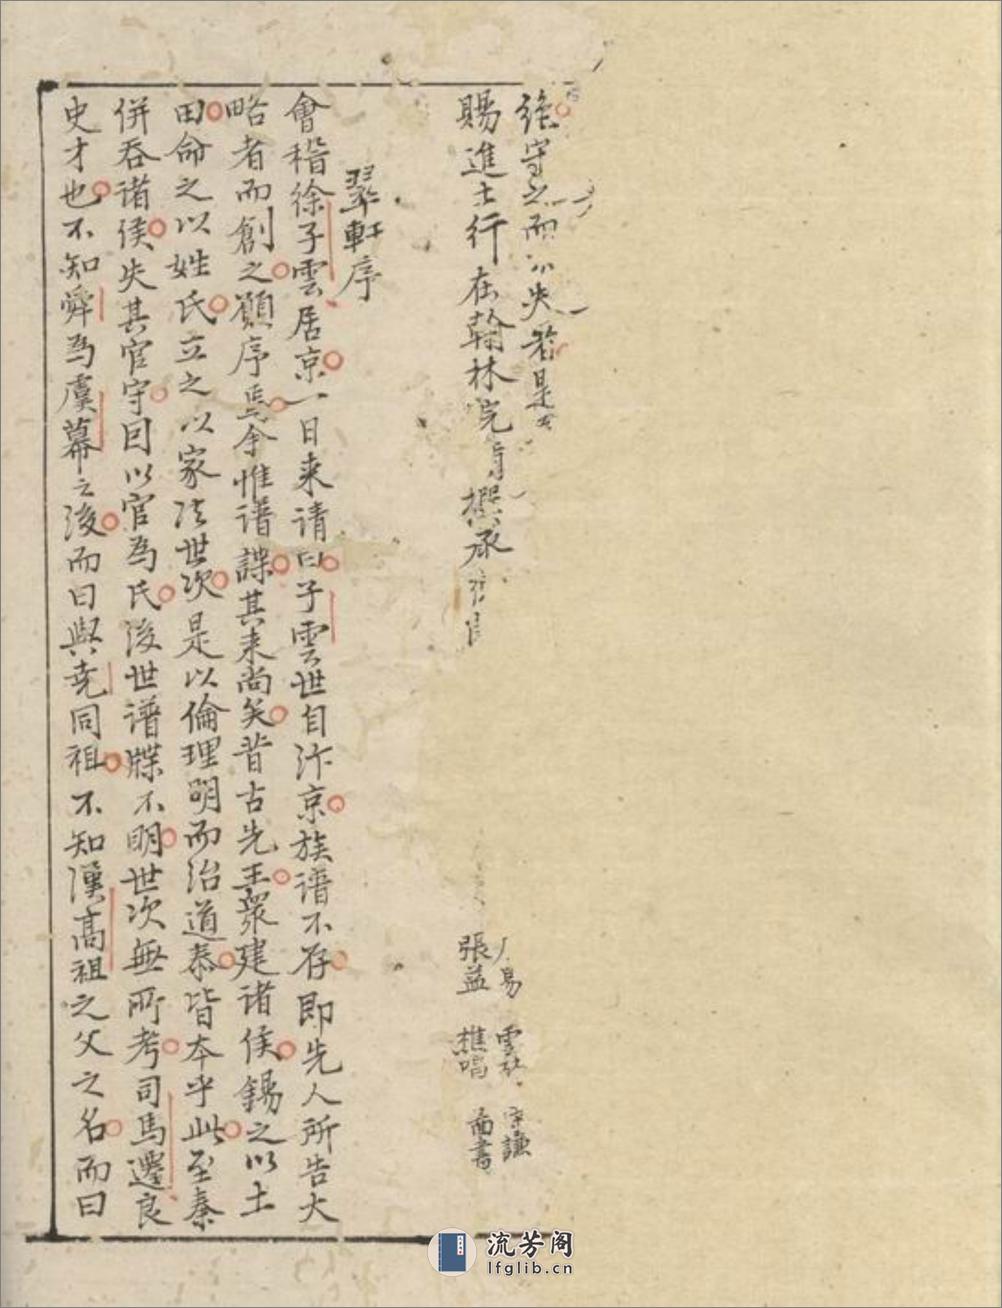 絕守之而不失者是
賜進士行在翰林院脩撰承
易 雲社 守謙
張益 樵唱 啚書
翠軒序
會稽徐子雲居京一日来请曰子雲世自汴京族谱不存即先人所告大
略者而創之願序焉余惟谱諜其来尚矣昔古先王眾建诸侯錫之以土
田命之以姓氏立之以家法世次是以倫理明而治道泰皆本乎此至秦
併吞诸侯失其官守囙以官為氏後世谱牒不明世次無所考司馬遷良
史才也不知舜為虞幕之後而曰與尭同祖不知漢高祖之父之名而曰
流芳阁
lfglib.cn